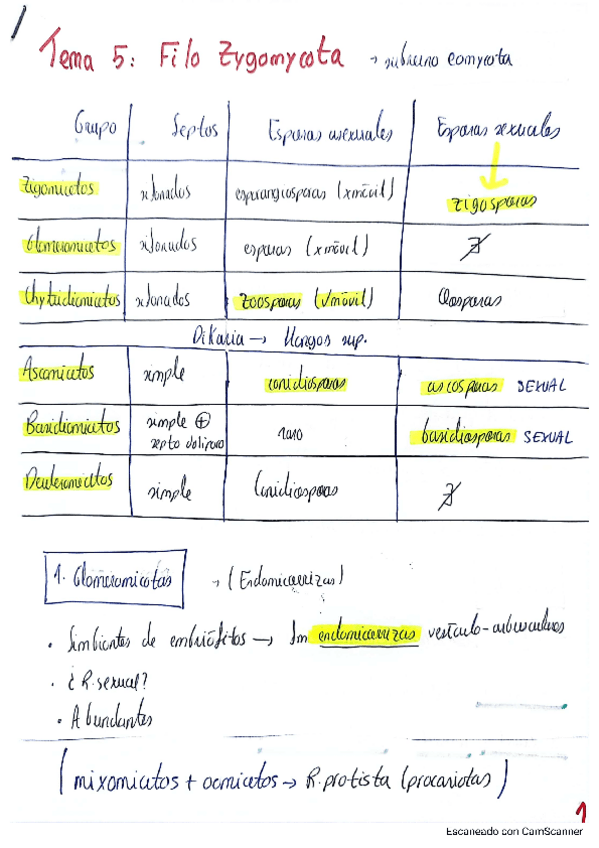 Tema 5: Filo Zygomycota → subreino eomycota
Grupo Septos Esporas asexuales Esporas sexuales
Zigomicetos xtonados esporangiosporas (x móvil) zigosporas
Glomeromicetos xtonados esporas (x móvil) ∄
Chytridiomicetos xtonados zoosporas (√móvil) Oosporas
Dikaria → Hongos sup.
Ascomicetos simple conidiosporas ascosporas SEXUAL
Basidiomicetos simple ⊕ raro basidiosporas SEXUAL
septo doliporo
Deuteromicetos simple Conidiosporas ∄
1. Glomeromicotas → (Endomicorrizas)
• Simbiontes de embriófitos → Im endomicorrizas vesículo-arbusculares
• ¿R. sexual?
• Abundantes
(mixomicetos + oomicetos → R. protista (procariotas)
1
Escaneado con CamScanner